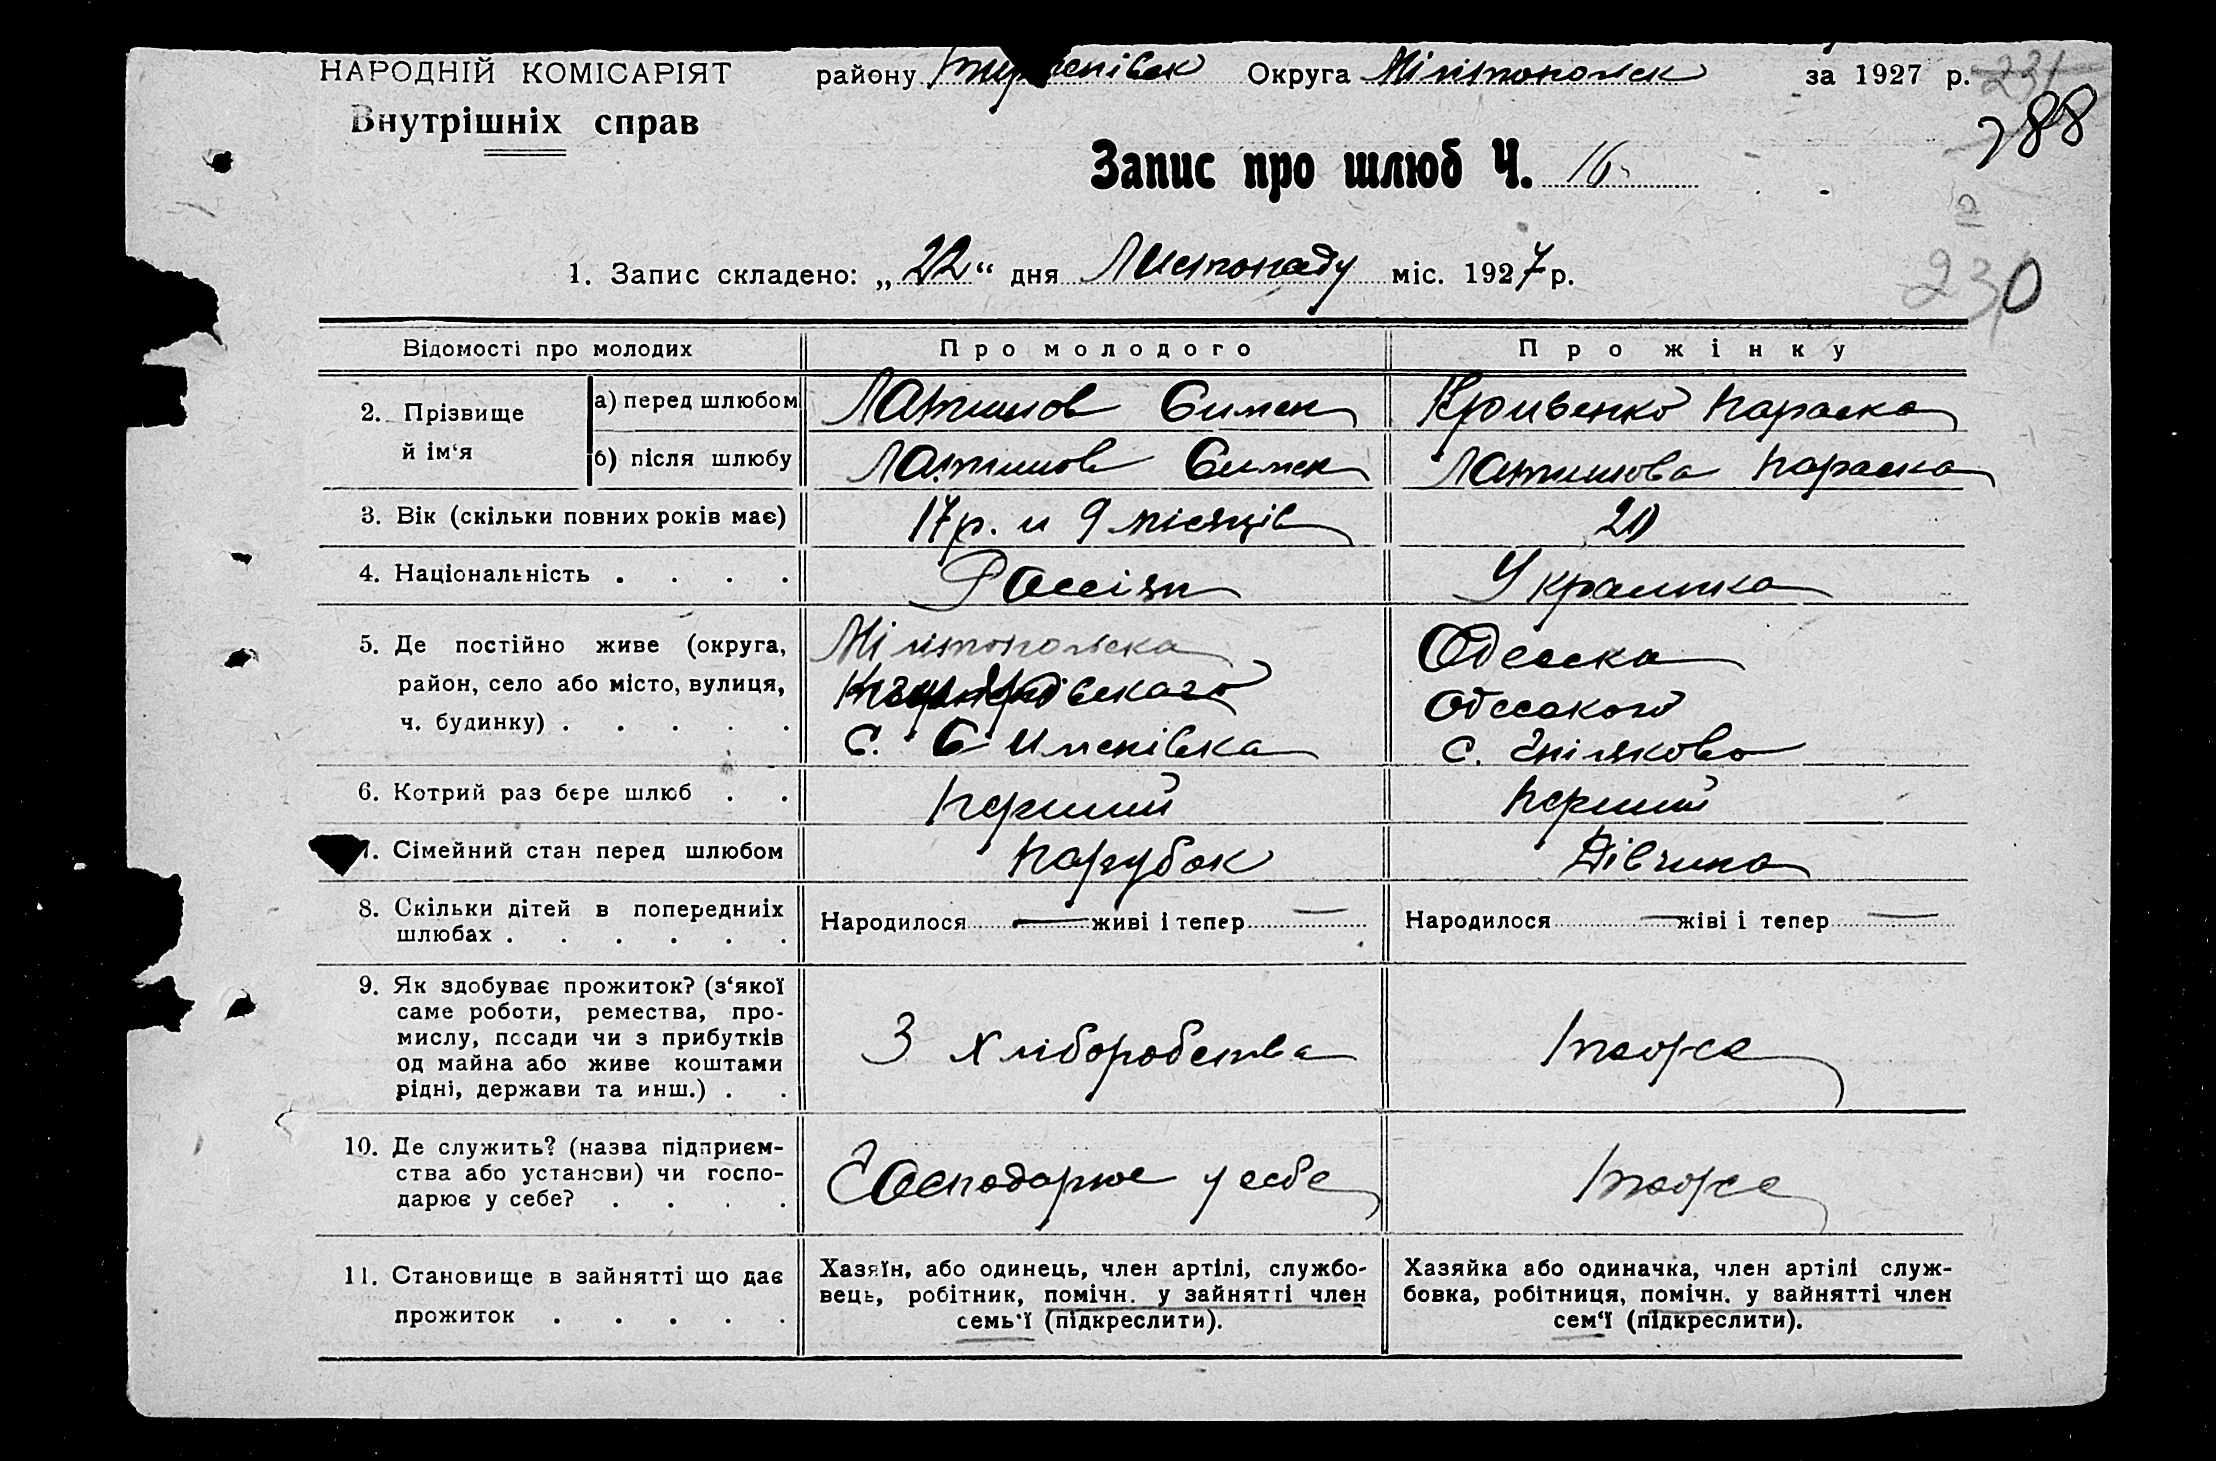 НАРОДНІЙ КОМІСАРІЯТ
Внутрішніх справ
району Округа Мілітопольск за 1927 р.
231
288
Запис про шлюб Ч. 16
230
1. Запис складено: „22“ дня Листопаду міс. 1927 р.
Відомості про молодих Про молодого Про жінку
2. Прізвище й ім‘я
а) перед шлюбом Латишов Симен Кривенко Параска
б) після шлюбу Латишов Симен Латишова Параска
3. Вік (скільки повних років має) 17 р. и 9 місяців 20
4. Національність . . . . Россіян Украинка
5. Де постійно живе (округа, Мілитопольска Одесска
район, село або місто, вулиця, Одесского
ч. будинку) . . . . . с. Сименівка с.
6. Котрий раз бере шлюб . . Перший Перший
7. Сімейний стан перед шлюбом Парубок Дівчина
8. Скільки дітей в попередниіх Народилося — живі і тепер — Народилося — жіві і тепер —
шлюбах . . . . . .
9. Як здобуває прожиток? (з‘якої
саме роботи, ремества, про-
мислу, посади чи з прибутків З хліборобства тоже
од майна або живе коштами
рідні, держави та инш.) . .
10. Де служить? (назва підприєм-
ства або установи) чи госпо- Господарює у себе тоже
дарює у себе? . . . .
11. Становище в зайнятті що дає
прожиток . . . . .
Хазяїн, або одинець, член артілі, службо-
вець, робітник, помічн. у зайнятті член
семь‘ї (підкреслити).
Хазяйка або одиначка, член артілі служ-
бовка, робітниця, помічн. у зайнятті член
сем‘ї (підкреслити).